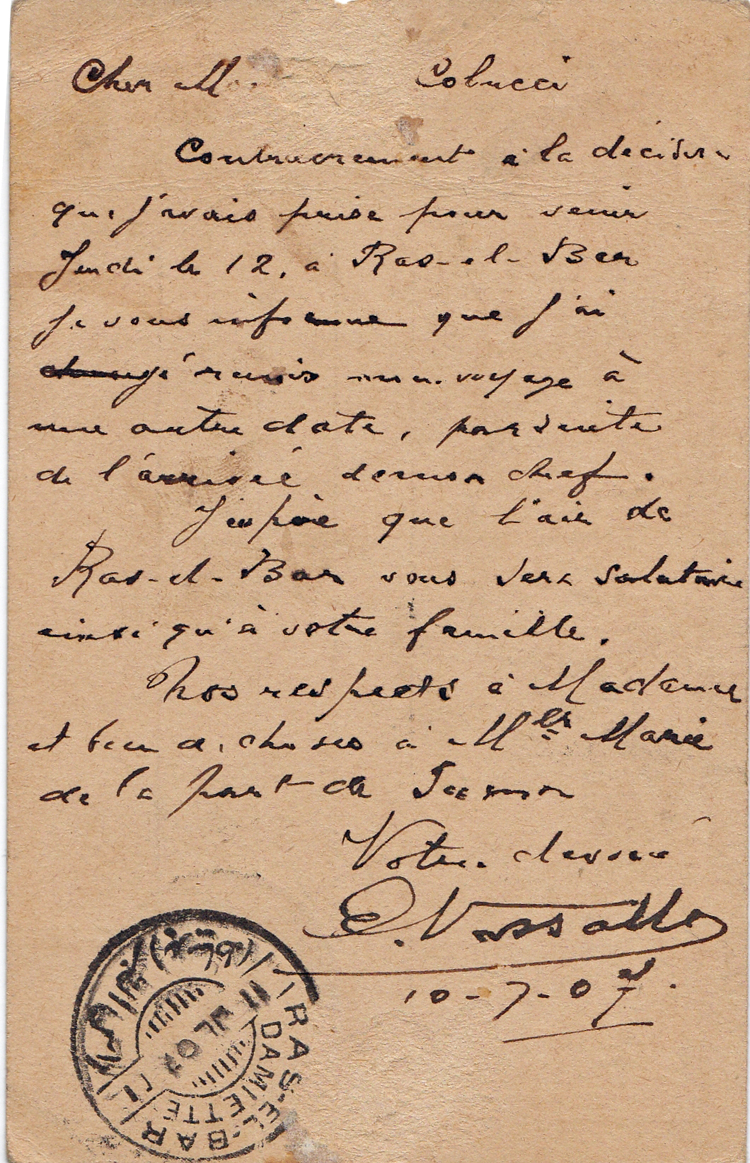 Cher M. Colucci
Contrairement à la décision
que j'avais prise pour venir
Jeudi le 12, à Ras-el-Bar
je vous informe que j'ai
changé remis mon voyage à
une autre date, par suite
de l'arrivée de mon chef.
J'espère que l'air de
Ras-el-Bar vous sera salutaire
ainsi qu'à votre famille.
Nos respects à Madame
et bien de choses à Mlle Marie
de la part de
Votre dévoué
E. Vassallo
10-7-07.
RAS-EL-BAR
DAMIETTE
11 JL 07